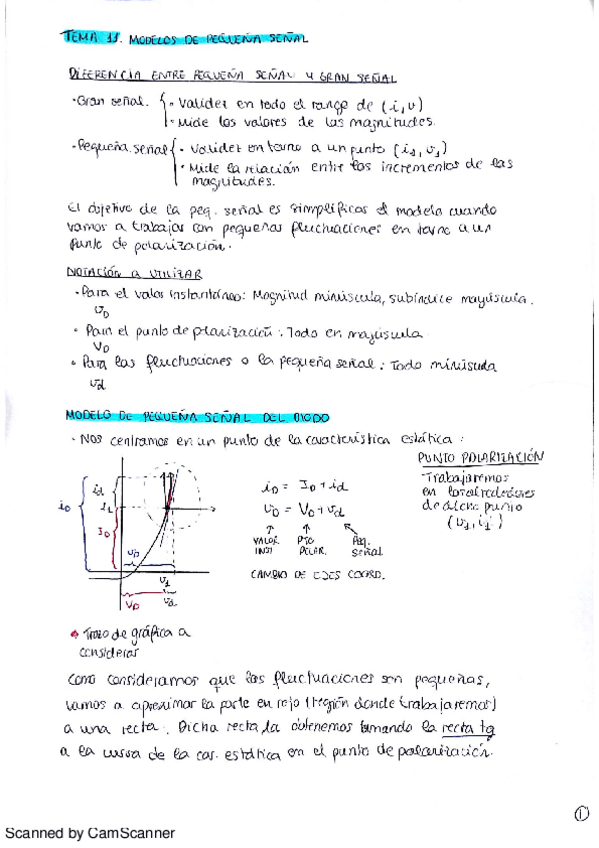 TEMA 11. MODELOS DE PEQUEÑA SEÑAL
DIFERENCIA ENTRE PEQUEÑA SEÑAL Y GRAN SEÑAL
· Gran señal. { · Validez en todo el rango de (i,v)
· Mide los valores de las magnitudes.
· Pequeña señal { · Validez en torno a un punto (i1, v1)
· Mide la relación entre los incrementos de las
magnitudes.
El objetivo de la peq. señal es simplificar el modelo cuando
vamos a trabajar con pequeñas fluctuaciones en torno a un
punto de polarización.
NOTACIÓN A UTILIZAR
· Para el valor instantáneo: Magnitud minúscula, subíndice mayúscula.
vD
· Para el punto de polarización: Todo en mayúscula
VD
· Para las fluctuaciones o la pequeña señal: Todo minúscula
vd
MODELO DE PEQUEÑA SEÑAL DEL DIODO
· Nos centramos en un punto de la característica estática:
PUNTO POLARIZACIÓN
Trabajaremos
en los alrededores
de dicho punto
(v1, i1)
iD = ID + id
vD = VD + vd
VALOR INST
PTO POLAR.
Peq. señal
CAMBIO DE EJES COORD.
iD
id
i1
ID
vD
v1
VD
vd
Trozo de gráfica a
considerar
Como consideramos que las fluctuaciones son pequeñas,
vamos a aproximar la parte en rojo (región donde trabajaremos)
a una recta. Dicha recta la obtenemos tomando la recta tg
a la curva de la car. estática en el punto de polarización.
1
Scanned by CamScanner